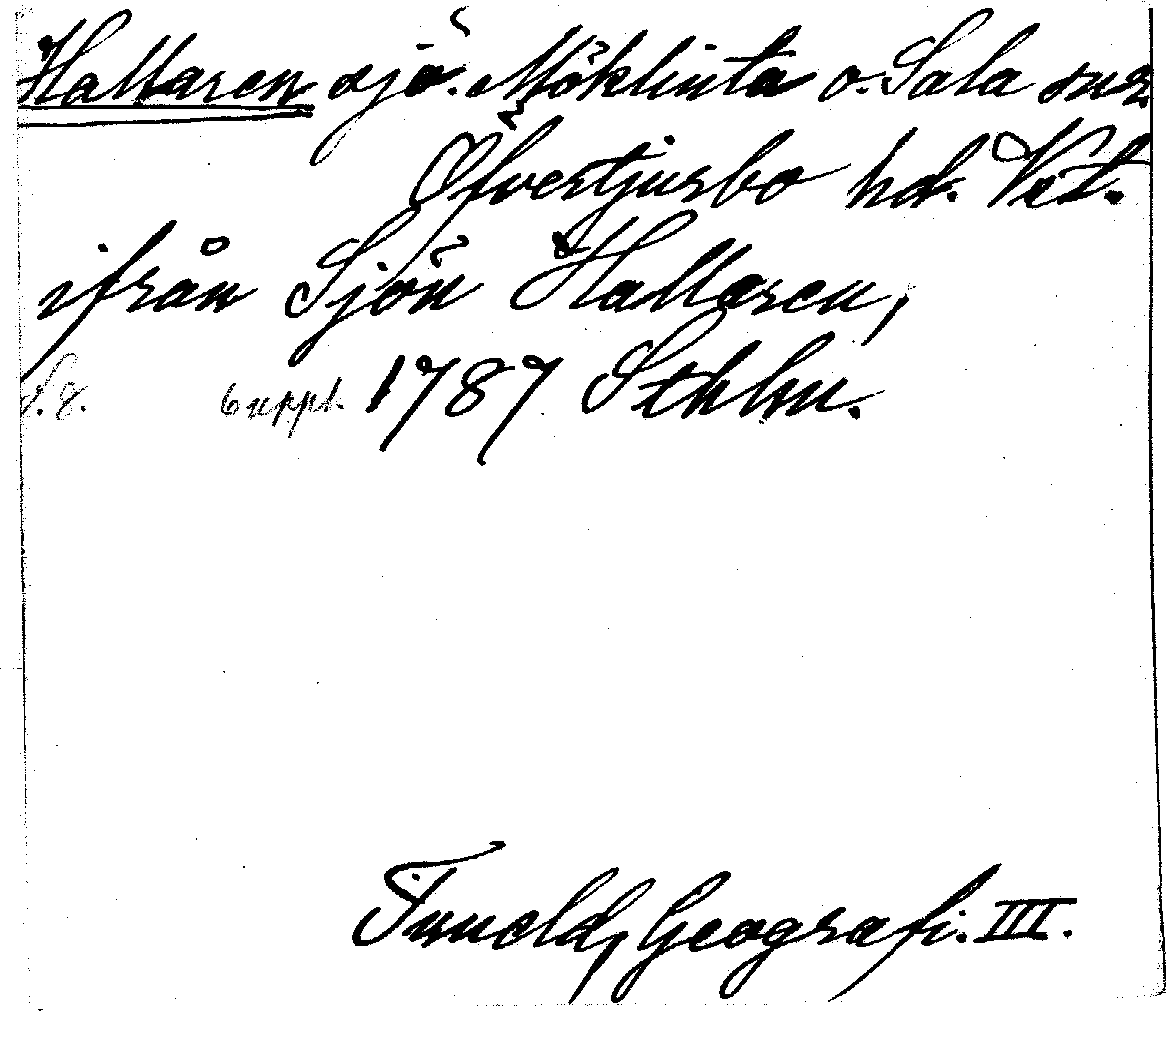 Hallaren sjö. Möklinta o. Sala snr
Öfvertjurbo hd. Vst.
ifrån Sjön Hallaren,
S. 8. 6 uppl. 1787 Sthlm.
Tuneld, Geografi. III.